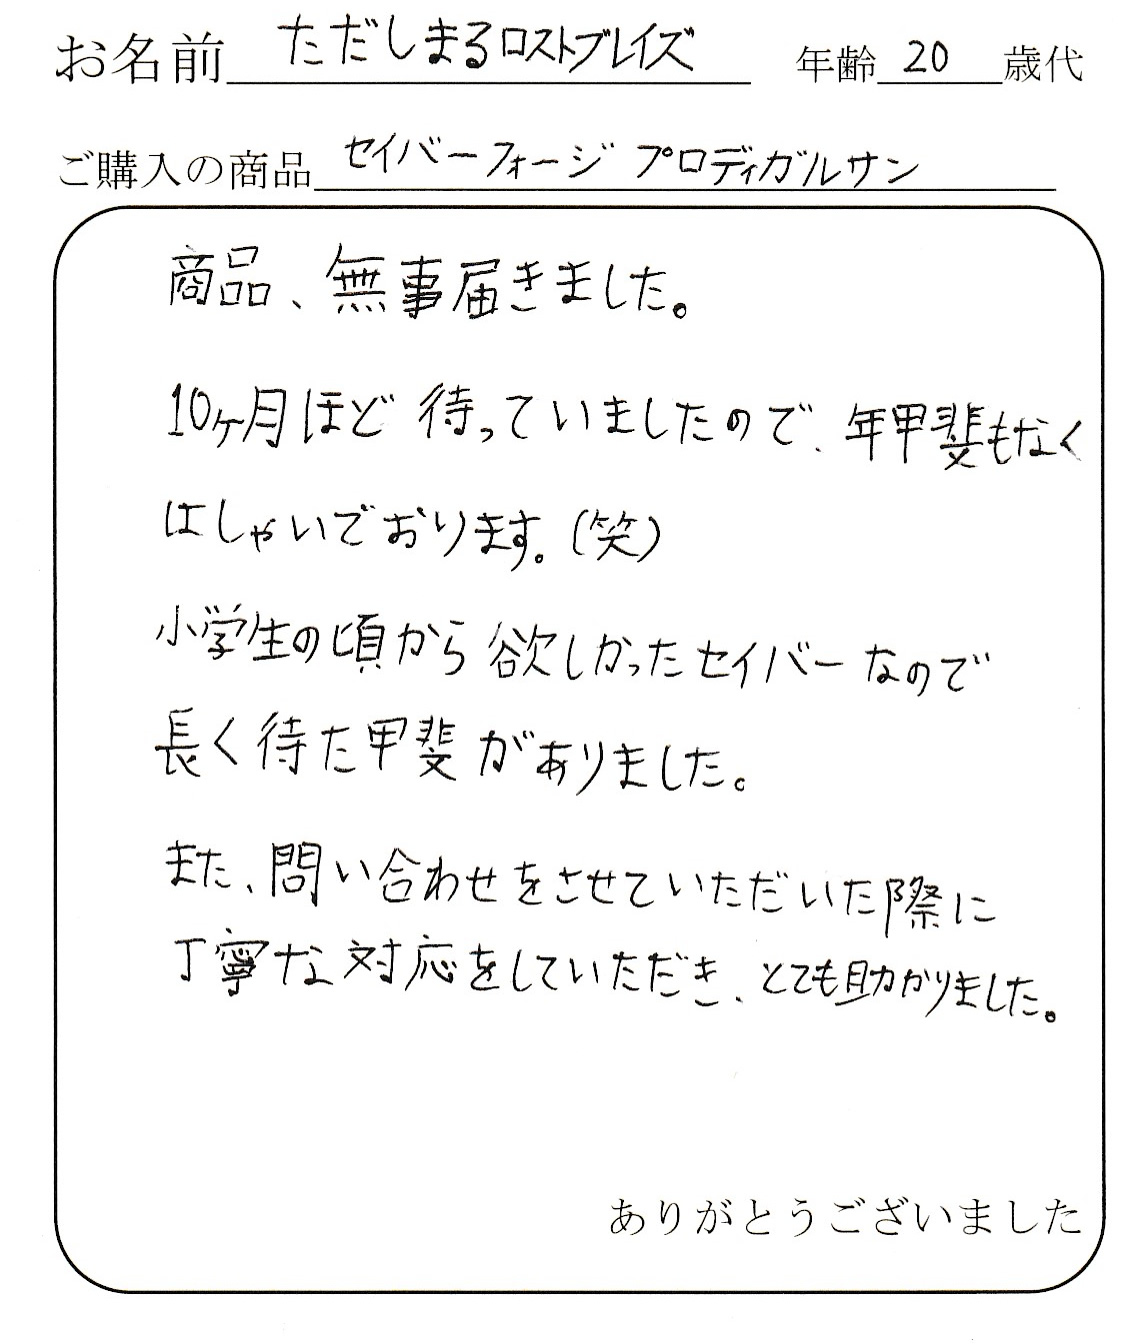 お名前 ただしまるロストブレイズ 年齢 20 歳代
ご購入の商品 セイバーフォージ プロディガルサン
商品、無事届きました。
10ヶ月ほど待っていましたので、年甲斐もなく
はしゃいでおります。(笑)
小学生の頃から欲しかったセイバーなので
長く待た甲斐がありました。
また、問い合わせをさせていただいた際に
丁寧な対応をしていただき、とても助かりました。
ありがとうございました